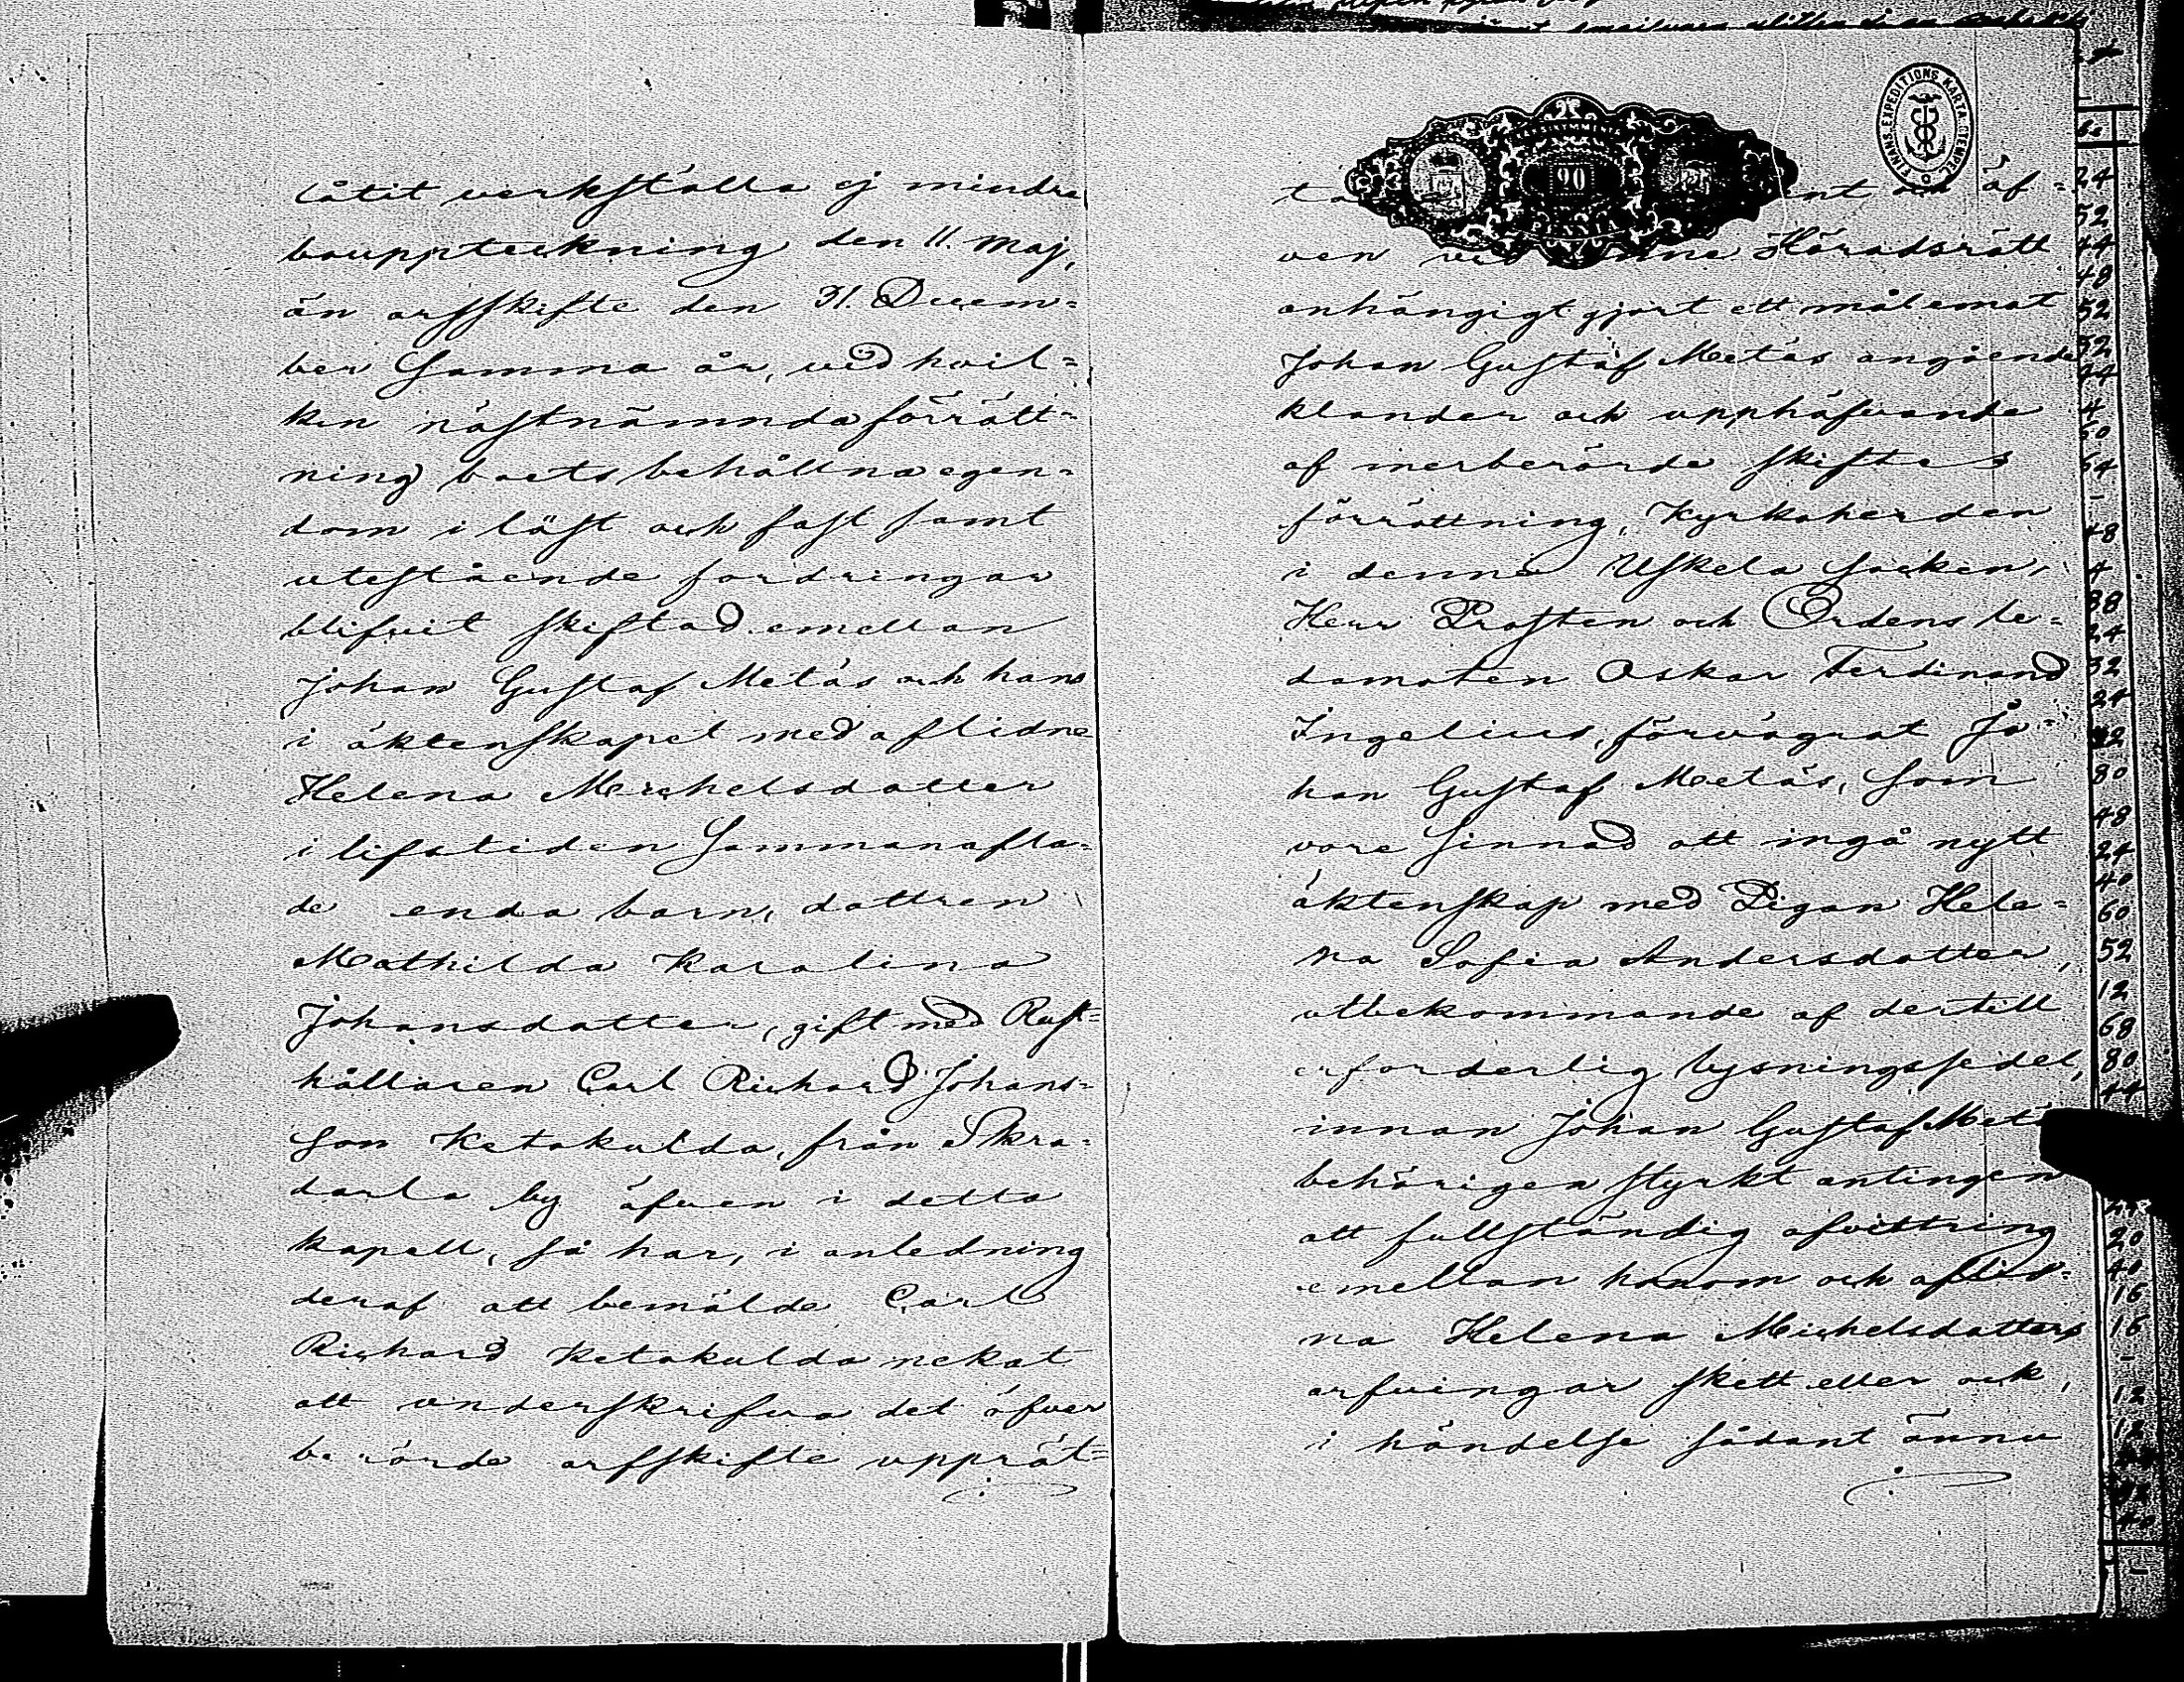 låtit verkställa ej mindre
bouppteckning den 11. Maj,
än arfskifte den 31. Decem=
ber Samma år, vid hvil=
ken nästnämnda förrätt=
ning boets behållna egen=
dom i löst och fast samt
utestående fordringar
blifvit skiftad emellan
Johan Gustaf Metäs och hans
i äktenskapet med aflidne
Helena Michelsdatter
i lifstiden Sammanafla=
de enda barn, dottren
Mathilda Karolina
Johansdatter, gift med Rust=
hållaren Carl Richard Johans=
son Ketokulda, från Skra=
darla by äfven i detta
kapell, så har, i anledning
deraf att bemälde Carl
Richard Ketokulda nekat
att underskrifva det öfver
berörde arfskifte upprät=
FINANS.EXPEDITIONS KARTA.STEMPEL
90
PENNIÄ
äf=
ven vid denne Häradsrätt
anhängigt gjort ett mål emot
Johan Gustaf Metäs angående
klander och upphäfvande
af merberörde skiftes
förrättning, Kyrkoherden
i denne Uskela Socken,
Herr Prosten och Ordens le=
damoten Oskar Ferdinand
Ingelius, förvägrat Jo=
han Gustaf Metäs, som
vore sinnad att ingå nytt
äktenskap med Pigan Hele=
na Sofia Andersdatter,
utbekommande af dertill
erforderlig lysningssedel,
innan Johan Gustaf
behörigen styrkt antingen
att fullständig afvittring
emellan honom och aflid=
na Helena Michelsdatters
arfvingar skett eller ock,
i händelse sådant ännu